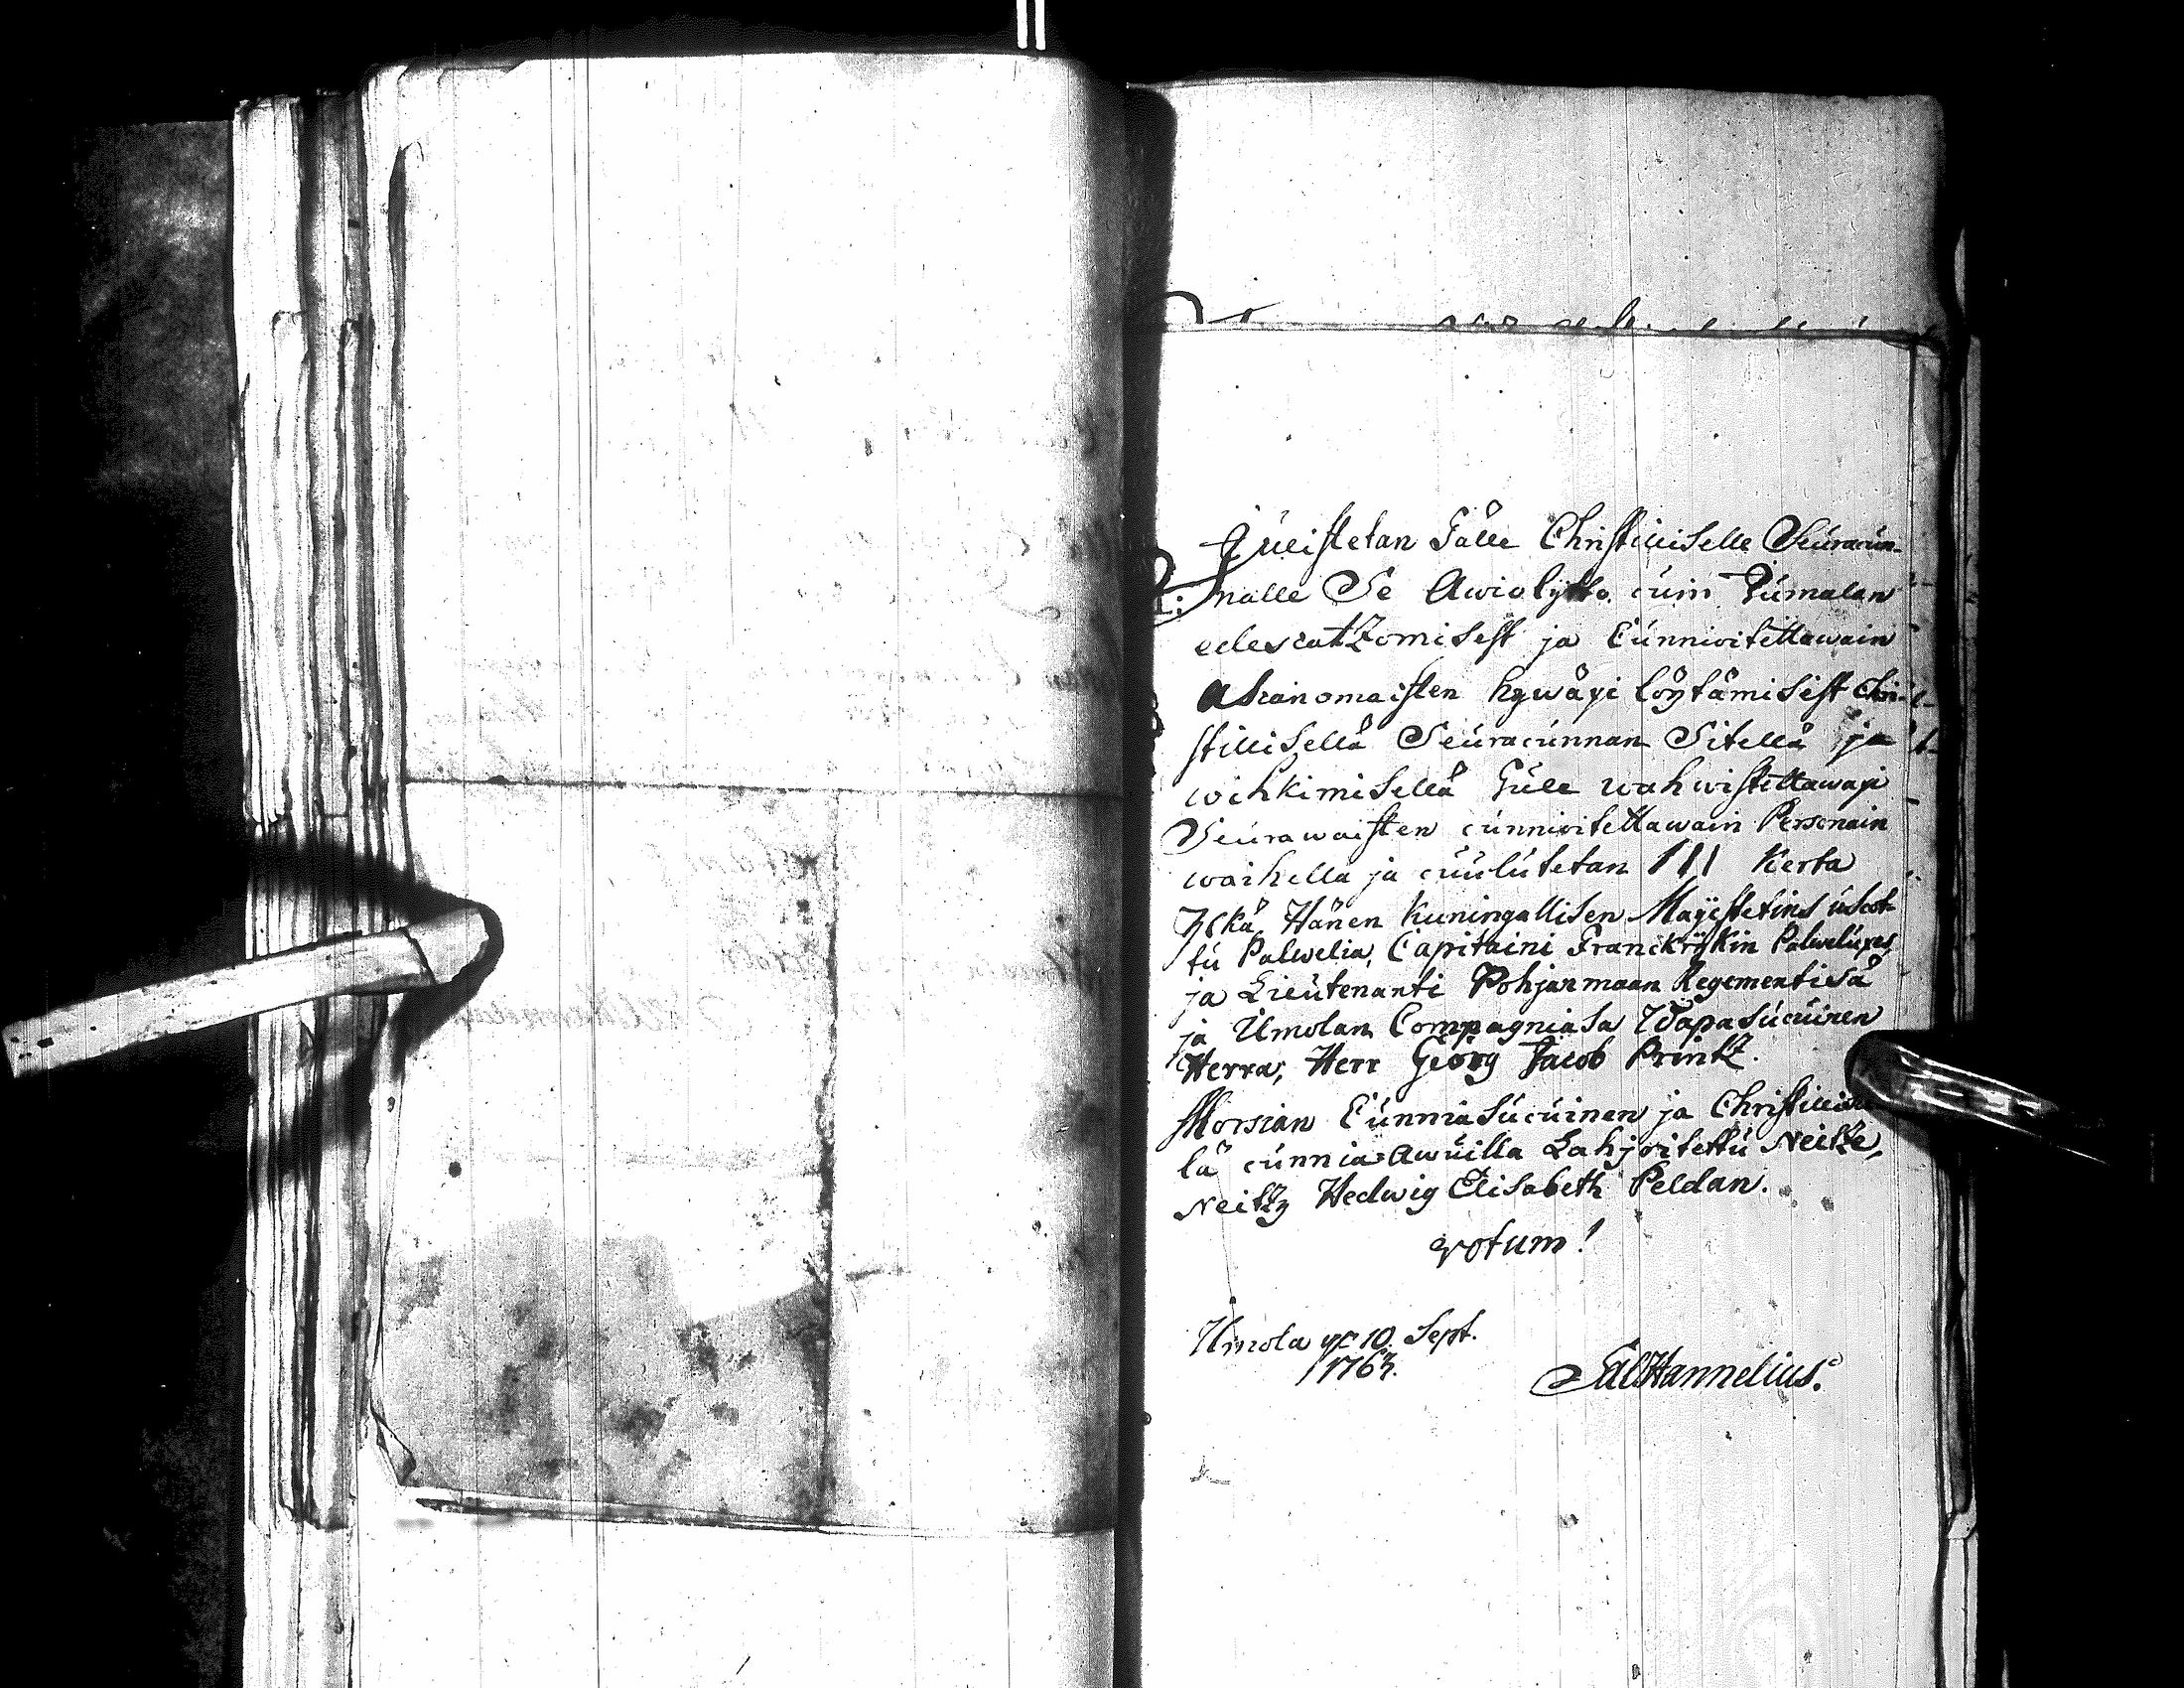 Julistetan Tälle Christilliselle Seuracun-
nalle Se Awiolijtto cuin Jumalan
edescatzomisest ja Cunnioitettawain
Asianomaisten hywäxi löytämisest Chri-
stillisellä Seuracunnan Sitellä ja
wihkimisellä Tule wahwistettawaxi
Seurawaisten cunnioitettawain Personain
waihella ja cuulutetan III Kerta
Ylkä Hänen Kuningallisen Mayestetins uscot-
tu Palwelia, Capitaini Franckrijkin Palweluxes,
ja Lieutenanti Pohjanmaan Regementisä
ja Ilmolan Compagniasa Wapasucuinen
Herra, Herr Georg Jacob Printz.
Morsian Cunniasucuinen ja Christillisel
lä cunnia-Awuilla Lahjoitettu Neitze,
Neitzy Hedwig Elisabeth Peldan.
votum!
Ilmola 10. Sept.
1763.
Hannelius.